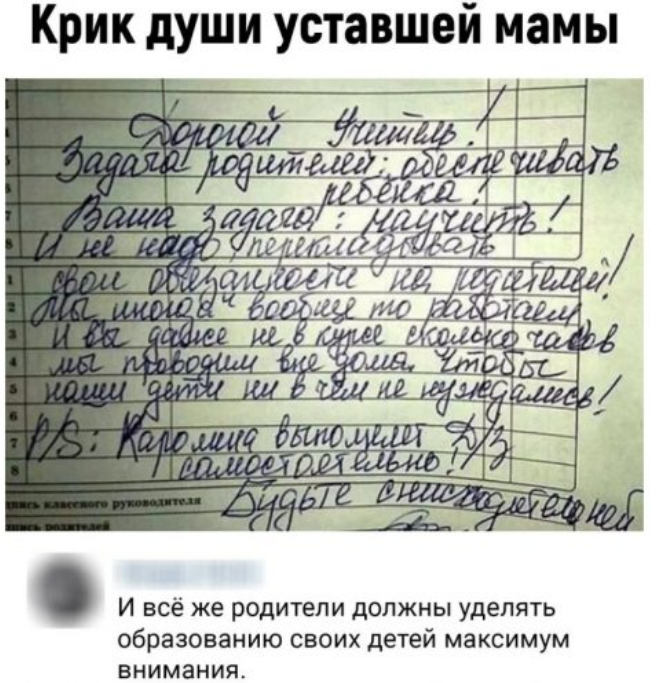 Крик души уставшей мамы
Дорогой Учитель!
Задача родителей: обеспечивать
ребёнка!
Ваша задача: научить!
И не надо перекладывать
свои обязаности на родителей!
Мы иногда вообще то работаем
И вы даже не в курсе сколько часов
мы проводим вне дома, чтобы
наши дети ни в чём не нуждались!
P/S: Каролина выполняет Д/З
самостоятельно!
Будьте снисходительней
пись классного руководителя
пись родителей
1
2
3
4
5
6
7
8
И всё же родители должны уделять
образованию своих детей максимум
внимания.